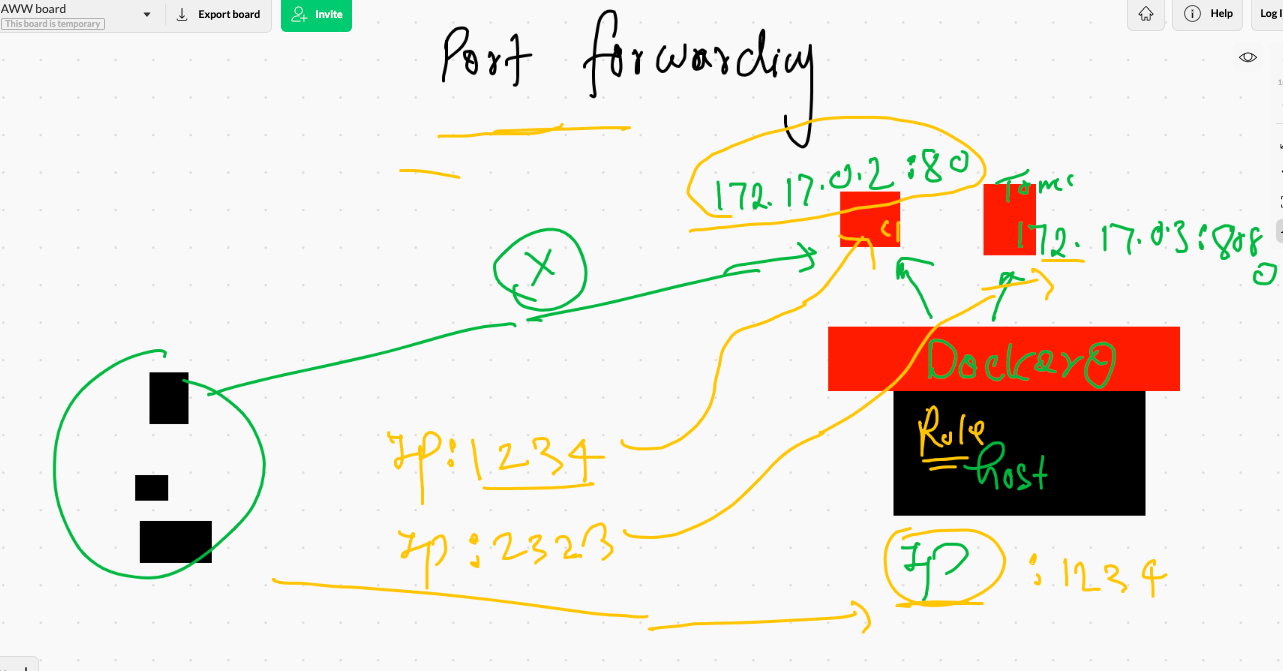 AWW board
This board is temporary
Export board
Invite
Help
Log I
Port forwarding
172.17.0.2:80
Tomc
172.17.03:8080
C1
X
Docker
Rule
host
IP:1234
IP:2323
IP:1234